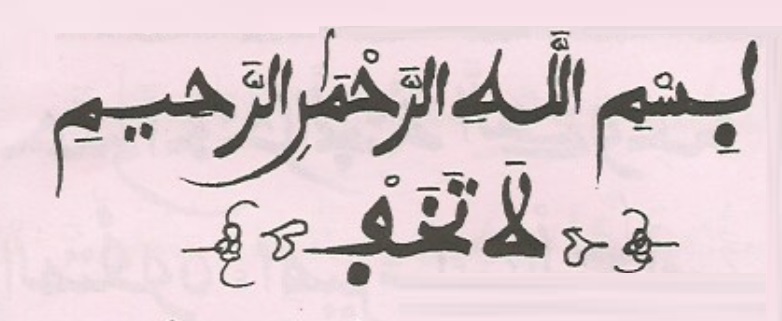 بِسْمِ اللَّهِ الرَّحْمَٰنِ الرَّحِيمِ
لَا تَخَفْ